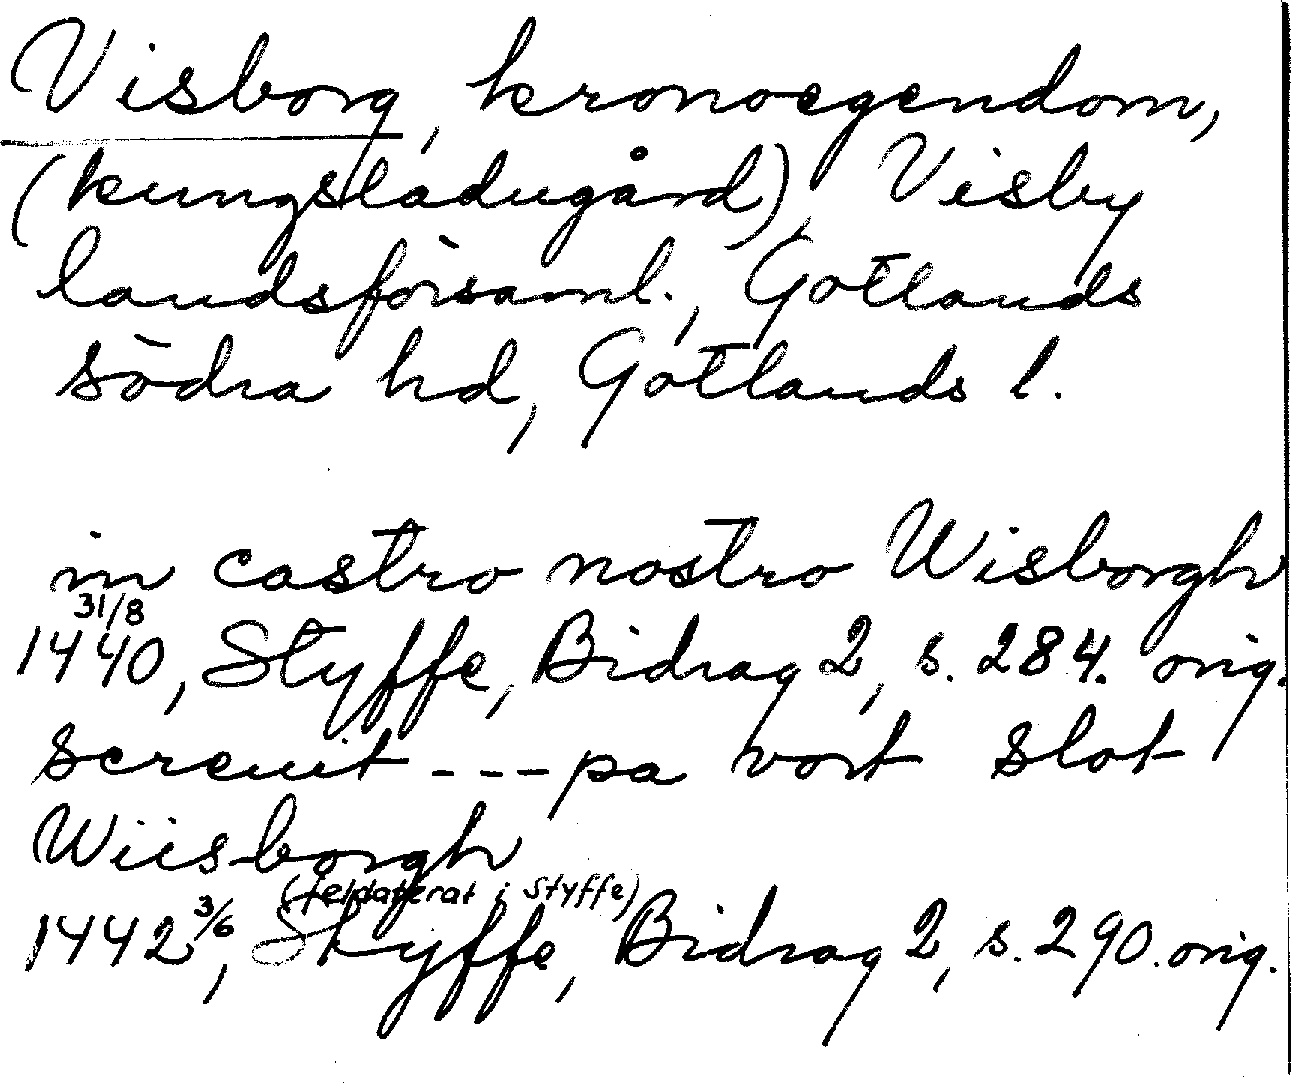 Visborg, kronoegendom,
(kungsladugård), Visby
landsförsaml., Gotlands
södra hd, Gotlands l.
in castro nostro Wisborgh
31/8
1440, Styffe, Bidrag 2, s. 284. orig.
screuit --- pa vort slot
Wiisborgh
(feldaterat i Styffe)
1442 3/6, Styffe, Bidrag 2, s. 290. orig.